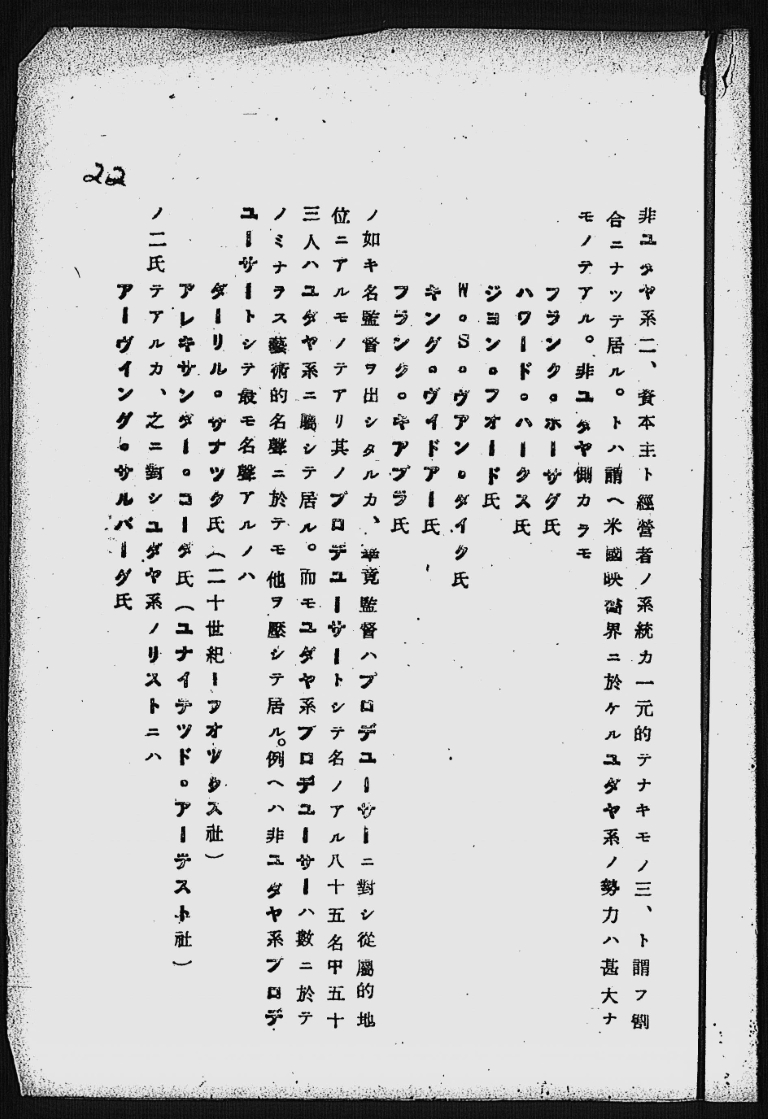 22
非ユダヤ系二、資本主ト經營者ノ系統カ一元的テナキモノ三、ト謂フ割
合ニナツテ居ル。トハ謂ヘ米國映畫界ニ於ケルユダヤ系ノ勢力ハ甚大ナ
モノテアル。非ユダヤ側カラモ
フランク。ホーサグ氏
ハワード。ハークス氏
ジヨン。フオード氏
W。S。ヴアン。ダイク氏
キング。ヴイドアー氏
フランク。キアプラ氏
ノ如キ名監督ヲ出シタルカ、畢竟監督ハプロデユーサーニ對シ從屬的地
位ニアルモノテアリ其ノプロデユーサートシテ名ノアル八十五名中五十
三人ハユダヤ系ニ屬シテ居ル。而モユダヤ系プロデユーサーハ數ニ於テ
ノミナラス藝術的名聲ニ於テモ他ヲ壓シテ居ル。例ヘハ非ユダヤ系プロデ
ユーサートシテ最モ名聲アルノハ
ダーリル。サナツク氏（二十世紀ーフオツクス社）
アレキサンダー。コーダ氏（ユナイテツド。アーテスト社）
ノ二氏テアルカ、之ニ對シユダヤ系ノリストニハ
アーヴイング。サルバーグ氏